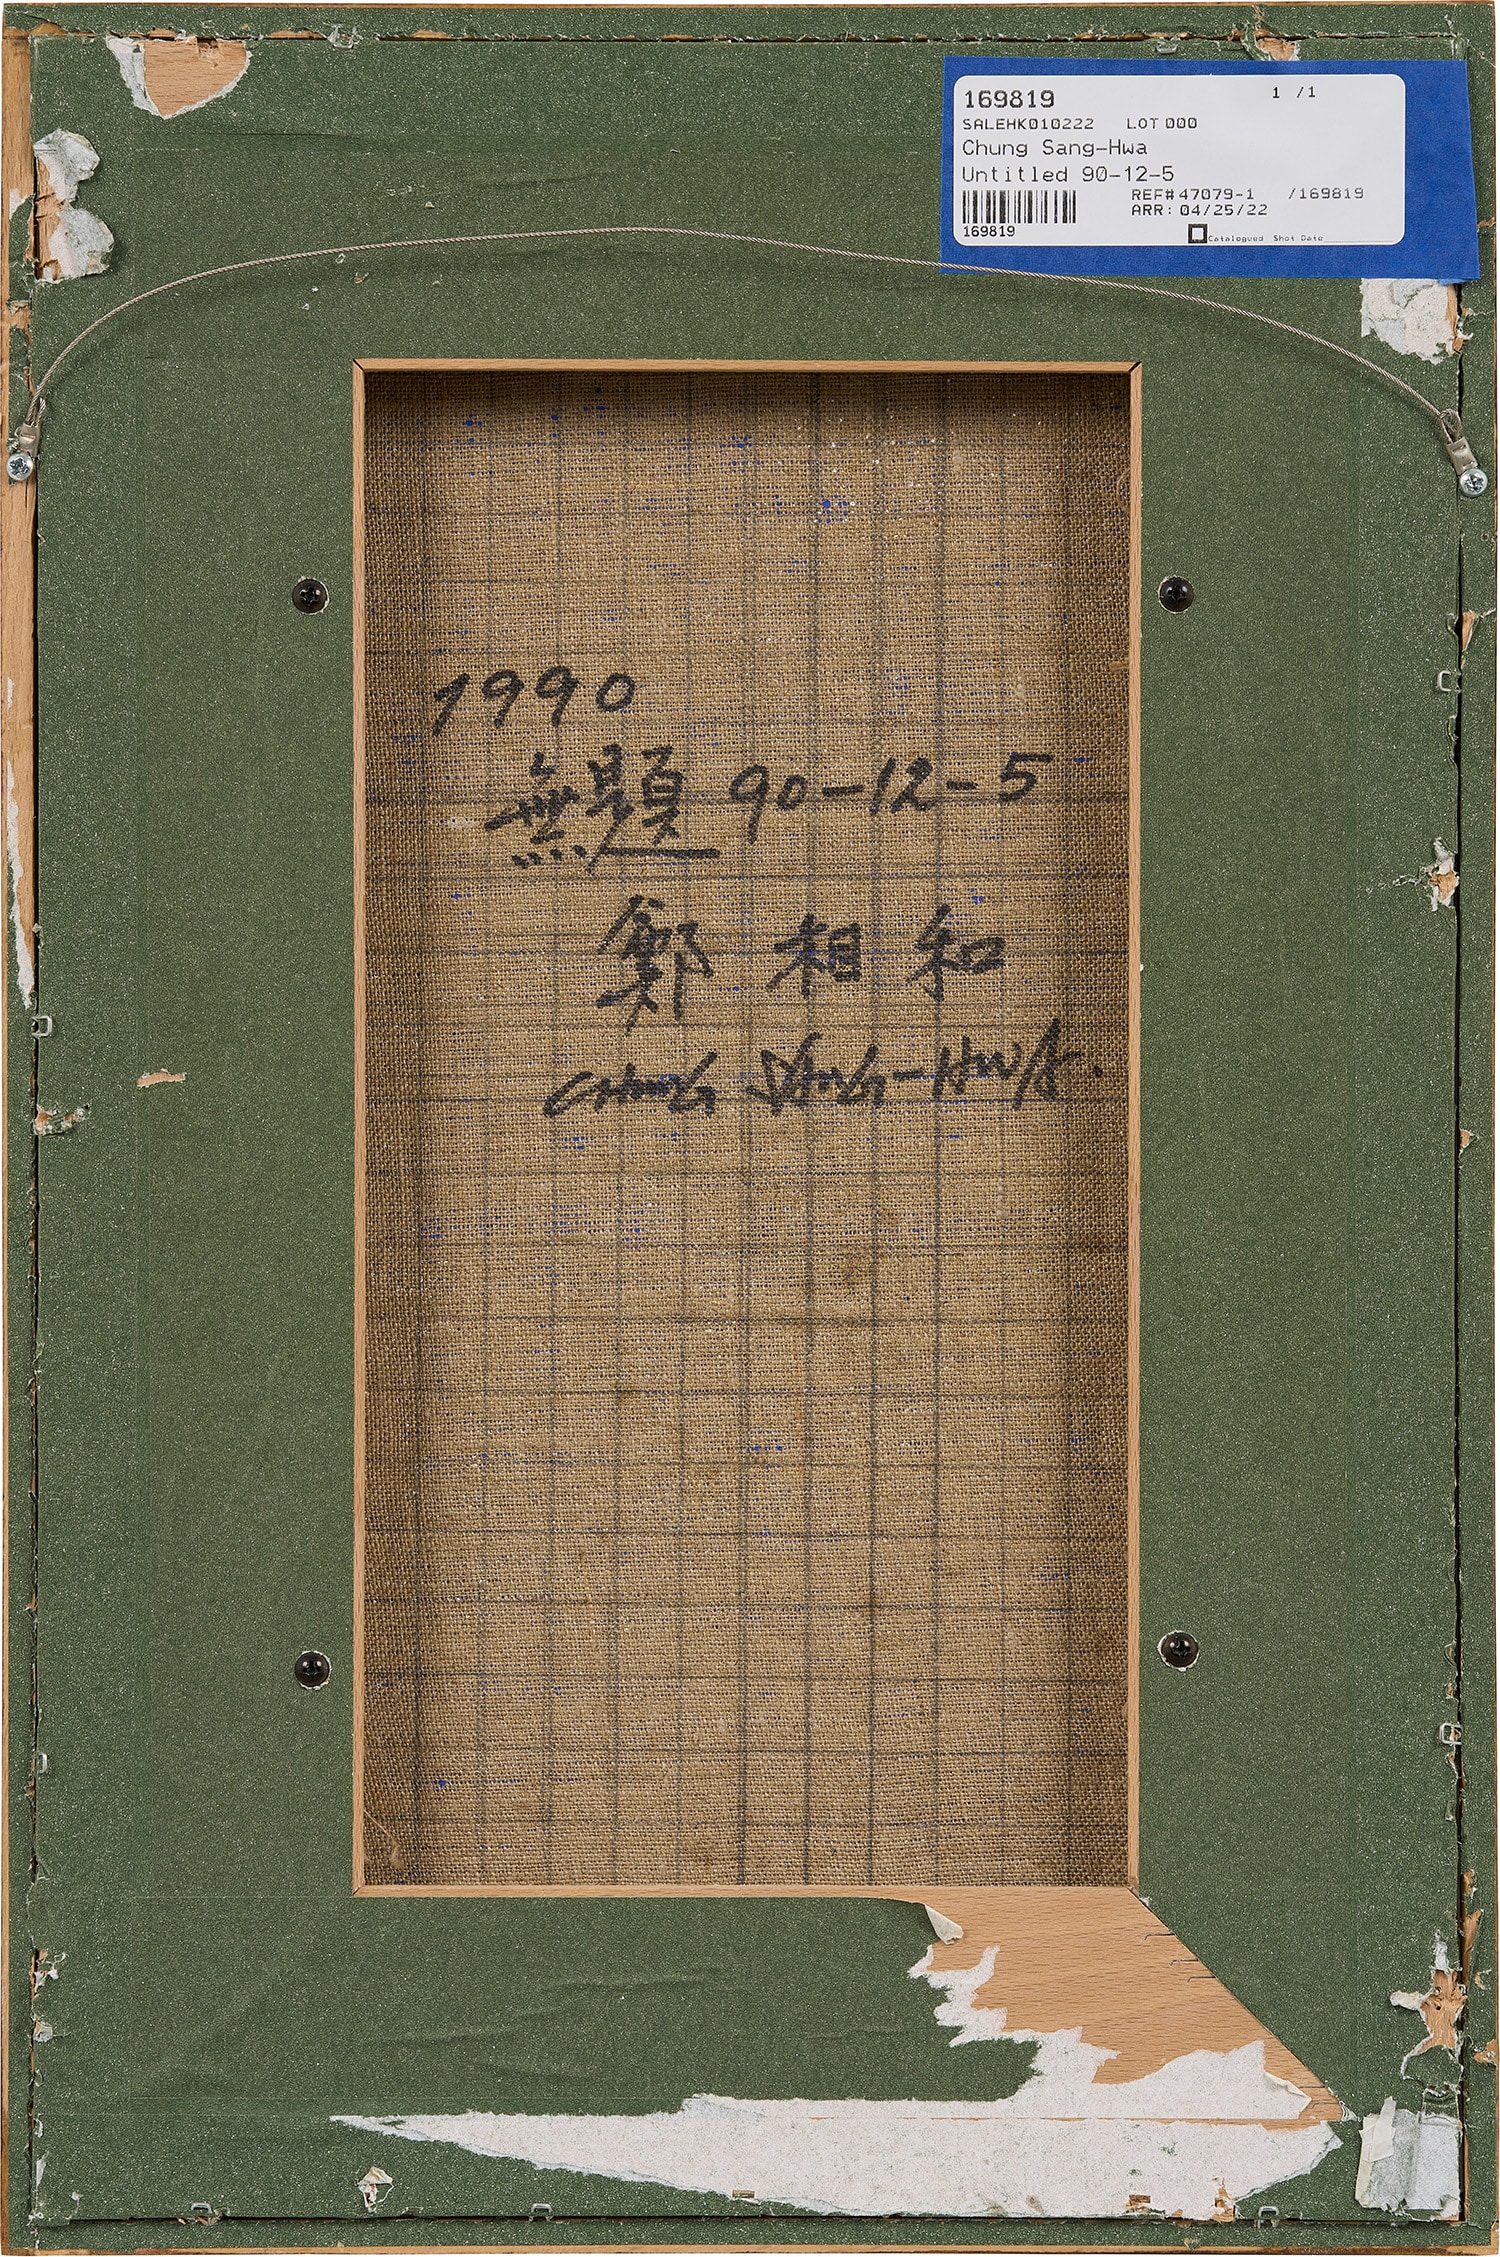 169819 1 /1
SALEHK010222 LOT 000
Chung Sang-Hwa
Untitled 90-12-5
REF# 47079-1 /169819
ARR: 04/25/22
169819
Catalogued Shot Date
1990
無題 90-12-5
鄭 相 和
CHUNG SANG-HWA.